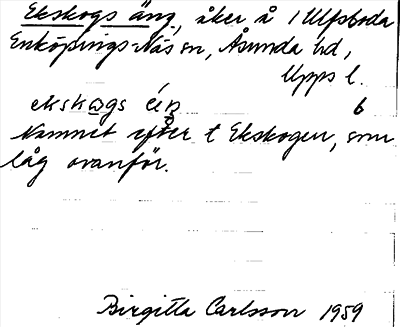 Ekskogs äng, åker å 1 Ulfsboda
Enköpings-Näs sn, Åsunda hd,
Upps l.
ekskωgs éŋ 6
Namnet efter t Ekskogen, som
låg ovanför.
Birgitta Carlsson 1959